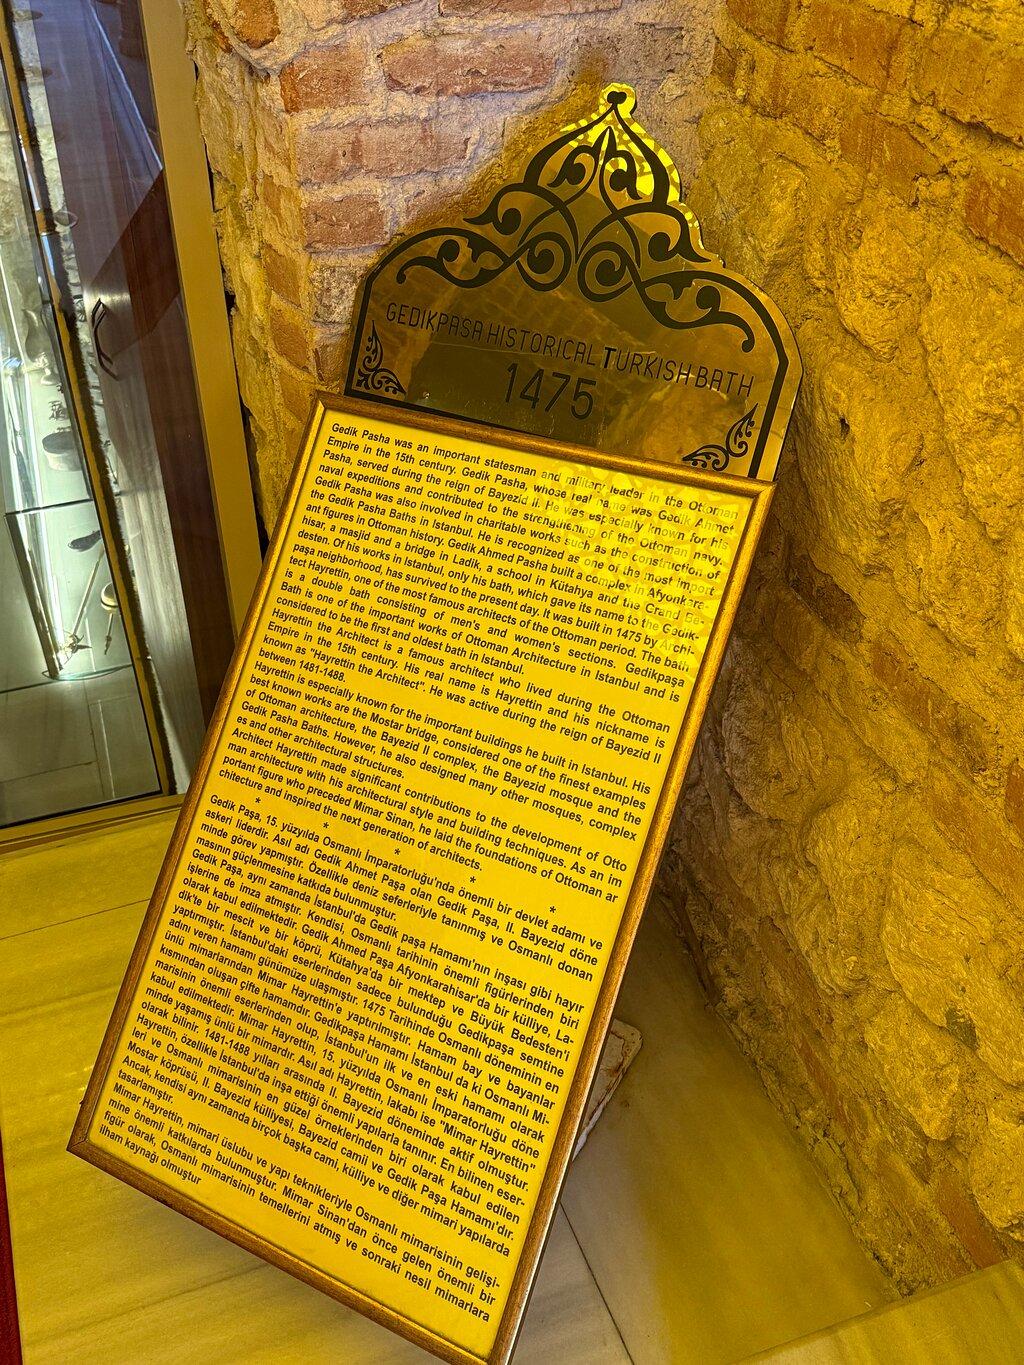 GEDIKPASA HISTORICAL TURKISH BATH
1475
Gedik Pasha was an important statesman and military leader in the Ottoman
Empire in the 15th century. Gedik Pasha, whose real name was Gedik Ahmet
Pasha, served during the reign of Bayezid II. He was especially known for his
naval expeditions and contributed to the strengthening of the Ottoman navy.
Gedik Pasha was also involved in charitable works such as the construction of
the Gedik Pasha Baths in Istanbul. He is recognized as one of the most import-
ant figures in Ottoman history. Gedik Ahmed Pasha built a complex in Afyonkara-
hisar, a masjid and a bridge in Ladik, a school in Kütahya and the Grand Be-
desten. Of his works in Istanbul, only his bath, which gave its name to the Gedik-
paşa neighborhood, has survived to the present day. It was built in 1475 by Archi-
tect Hayrettin, one of the most famous architects of the Ottoman period. The bath
is a double bath consisting of men's and women's sections. Gedikpaşa
Bath is one of the important works of Ottoman Architecture in Istanbul and is
considered to be the first and oldest bath in Istanbul.
Hayrettin the Architect is a famous architect who lived during the Ottoman
Empire in the 15th century. His real name is Hayrettin and his nickname is
known as "Hayrettin the Architect". He was active during the reign of Bayezid II
between 1481-1488.
Hayrettin is especially known for the important buildings he built in Istanbul. His
best known works are the Mostar bridge, considered one of the finest examples
of Ottoman architecture, the Bayezid II complex, the Bayezid mosque and the
Gedik Pasha Baths. However, he also designed many other mosques, complex
es and other architectural structures.
Architect Hayrettin made significant contributions to the development of Otto
man architecture with his architectural style and building techniques. As an im
portant figure who preceded Mimar Sinan, he laid the foundations of Ottoman ar
chitecture and inspired the next generation of architects.
* * * * *
Gedik Paşa, 15. yüzyılda Osmanlı İmparatorluğu'nda önemli bir devlet adamı ve
askeri liderdir. Asıl adı Gedik Ahmet Paşa olan Gedik Paşa, II. Bayezid döne
minde görev yapmıştır. Özellikle deniz seferleriyle tanınmış ve Osmanlı donan
masının güçlenmesine katkıda bulunmuştur.
Gedik Paşa, aynı zamanda İstanbul'da Gedik paşa Hamamı'nın inşası gibi hayır
işlerine de imza atmıştır. Kendisi, Osmanlı tarihinin önemli figürlerinden biri
olarak kabul edilmektedir. Gedik Ahmed Paşa Afyonkarahisar'da bir külliye, La-
dik'te bir mescit ve bir köprü, Kütahya'da bir mektep ve Büyük Bedesten'i
yaptırmıştır. İstanbul'daki eserlerinden sadece bulunduğu Gedikpaşa semtine
adını veren hamamı günümüze ulaşmıştır. 1475 Tarihinde Osmanlı döneminin en
ünlü mimarlarından Mimar Hayrettin'e yaptırılmıştır. Hamam bay ve bayanlar
kısmından oluşan çifte hamamdır. Gedikpaşa Hamamı İstanbul da ki Osmanlı Mi-
marisinin önemli eserlerinden olup, İstanbul'un ilk ve en eski hamamı olarak
kabul edilmektedir. Mimar Hayrettin, 15. yüzyılda Osmanlı İmparatorluğu döne
minde yaşamış ünlü bir mimardır. Asıl adı Hayrettin, lakabı ise "Mimar Hayrettin"
olarak bilinir. 1481-1488 yılları arasında II. Bayezid döneminde aktif olmuştur.
Hayrettin, özellikle İstanbul'da inşa ettiği önemli yapılarla tanınır. En bilinen eser-
leri ve Osmanlı mimarisinin en güzel örneklerinden biri olarak kabul edilen
Mostar köprüsü, II. Bayezid külliyesi, Bayezid camii ve Gedik Paşa Hamamı'dır.
Ancak, kendisi aynı zamanda birçok başka cami, külliye ve diğer mimari yapılarda
tasarlamıştır.
Mimar Hayrettin, mimari üslubu ve yapı teknikleriyle Osmanlı mimarisinin gelişi-
mine önemli katkılarda bulunmuştur. Mimar Sinan'dan önce gelen önemli bir
figür olarak, Osmanlı mimarisinin temellerini atmış ve sonraki nesil mimarlara
ilham kaynağı olmuştur